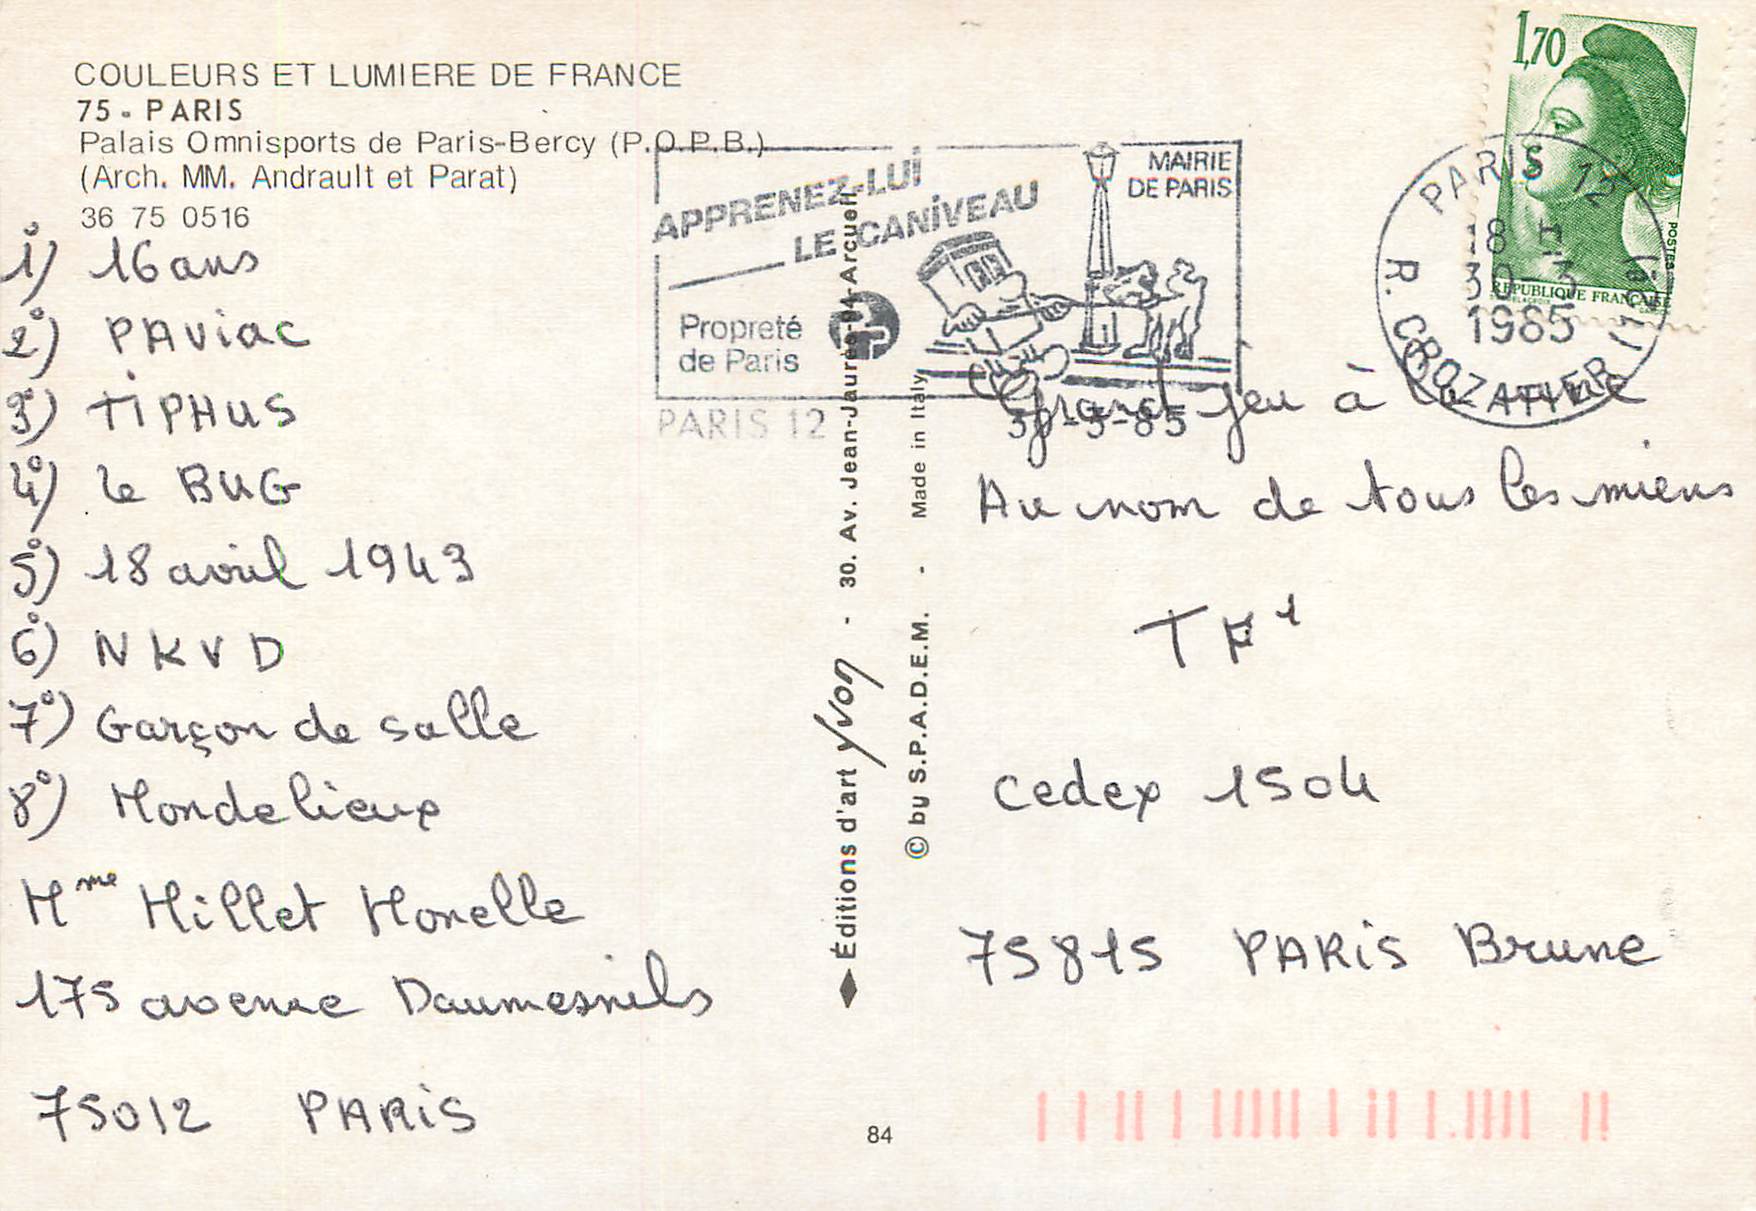 COULEURS ET LUMIERE DE FRANCE
75 - PARIS
Palais Omnisports de Paris-Bercy (P.O.P.B.)
(Arch. MM. Andrault et Parat)
36 75 0516
1°) 16 ans
2°) PAViAC
3°) TiPHUS
4°) le BUG
5°) 18 avril 1943
6°) NKVD
7°) Garçon de salle
8°) Mondelieux
Mme Millet Monelle
175 avenue Daumesnils
75012 PARiS
APPRENEZ-LUI
LE CANiVEAU
MAIRIE
DE PARIS
Propreté
de Paris
PARIS 12
30-3-85
Éditions d'art Yvon - 30. Av. Jean-Jaurès-94-Arcueil
© by S.P.A.D.E.M. - Made in Italy
84
1,70
POSTES
REPUBLIQUE FRANÇAISE
PARIS 12
18 H
30-3
1985
R. CROZATIER (12e)
Grand jeu à la une
Au nom de tous les miens
TF1
Cedex 1504
75815 PARiS Brune